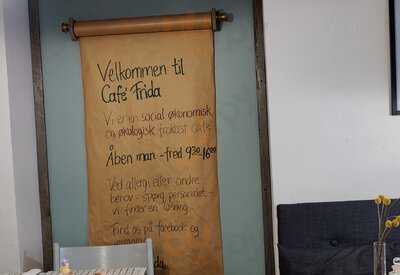 Velkommen til
Café Frida
Vi er en social økonomisk
og økologisk frokost café
Åben man - fred 9³⁰-16⁰⁰
Ved allergi eller andre
behov - spørg personalet -
vi finder en løsning
Find os på facebook og